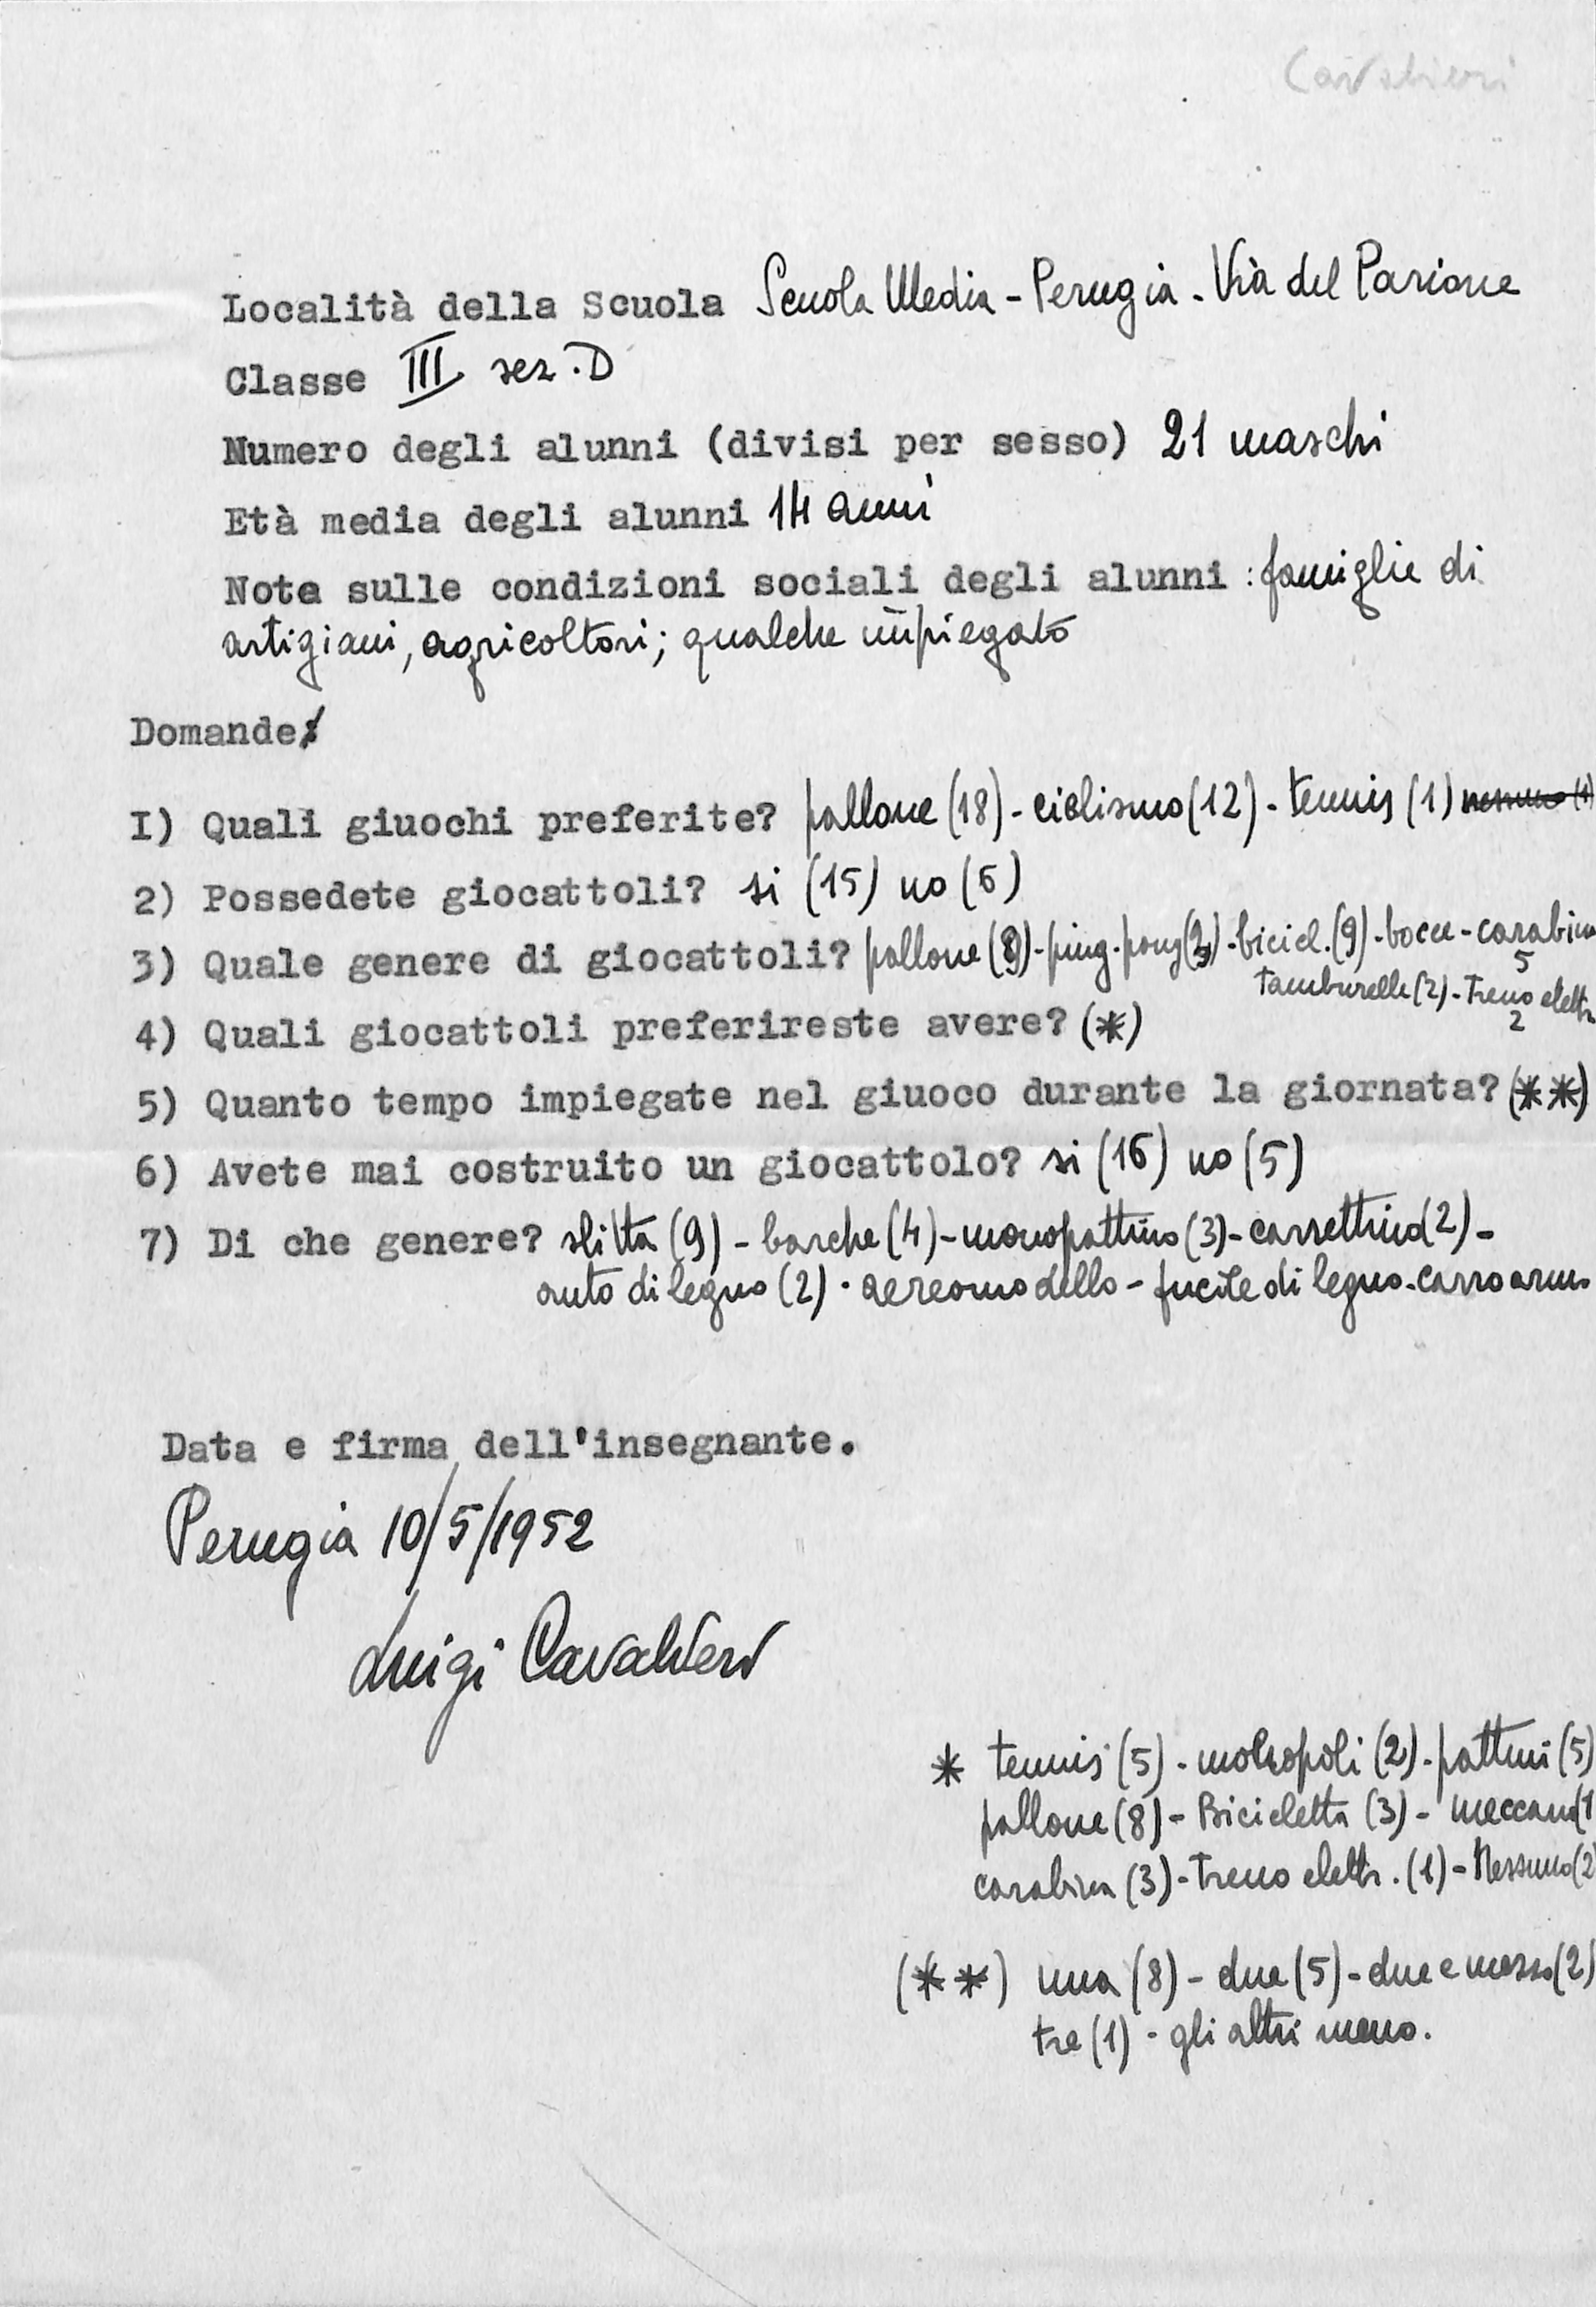 Cavalieri
Località della Scuola Scuola Media - Perugia - Via del Parione
Classe III sez. D
Numero degli alunni (divisi per sesso) 21 maschi
Età media degli alunni 14 anni
Note sulle condizioni sociali degli alunni : famiglie di
artigiani, agricoltori; qualche impiegato
Domande:
I) Quali giuochi preferite? pallone (18) - ciclismo (12) - tennis (1) nessuno (1)
2) Possedete giocattoli? si (15) no (6)
3) Quale genere di giocattoli? pallone (8) - ping-pong - bicicl. (9) - bocce - carabina
5
tamburelle (2) - treno elettr.
2
4) Quali giocattoli preferireste avere? (*)
5) Quanto tempo impiegate nel giuoco durante la giornata? (**)
6) Avete mai costruito un giocattolo? si (16) no (5)
7) Di che genere? slitta (9) - barche (4) - monopattino (3) - carrettino (2) -
auto di legno (2) - aereomodello - fucile di legno - carro arm.
Data e firma dell'insegnante.
Perugia 10/5/1952
Luigi Cavalieri
* tennis (5) - monopoli (2) - pattini (5)
pallone (8) - Bicicletta (3) - meccano (1
carabina (3) - treno elettr. (1) - Nessuno (2)
(**) una (8) - due (5) - due e mezzo (2)
tre (1) - gli altri meno.